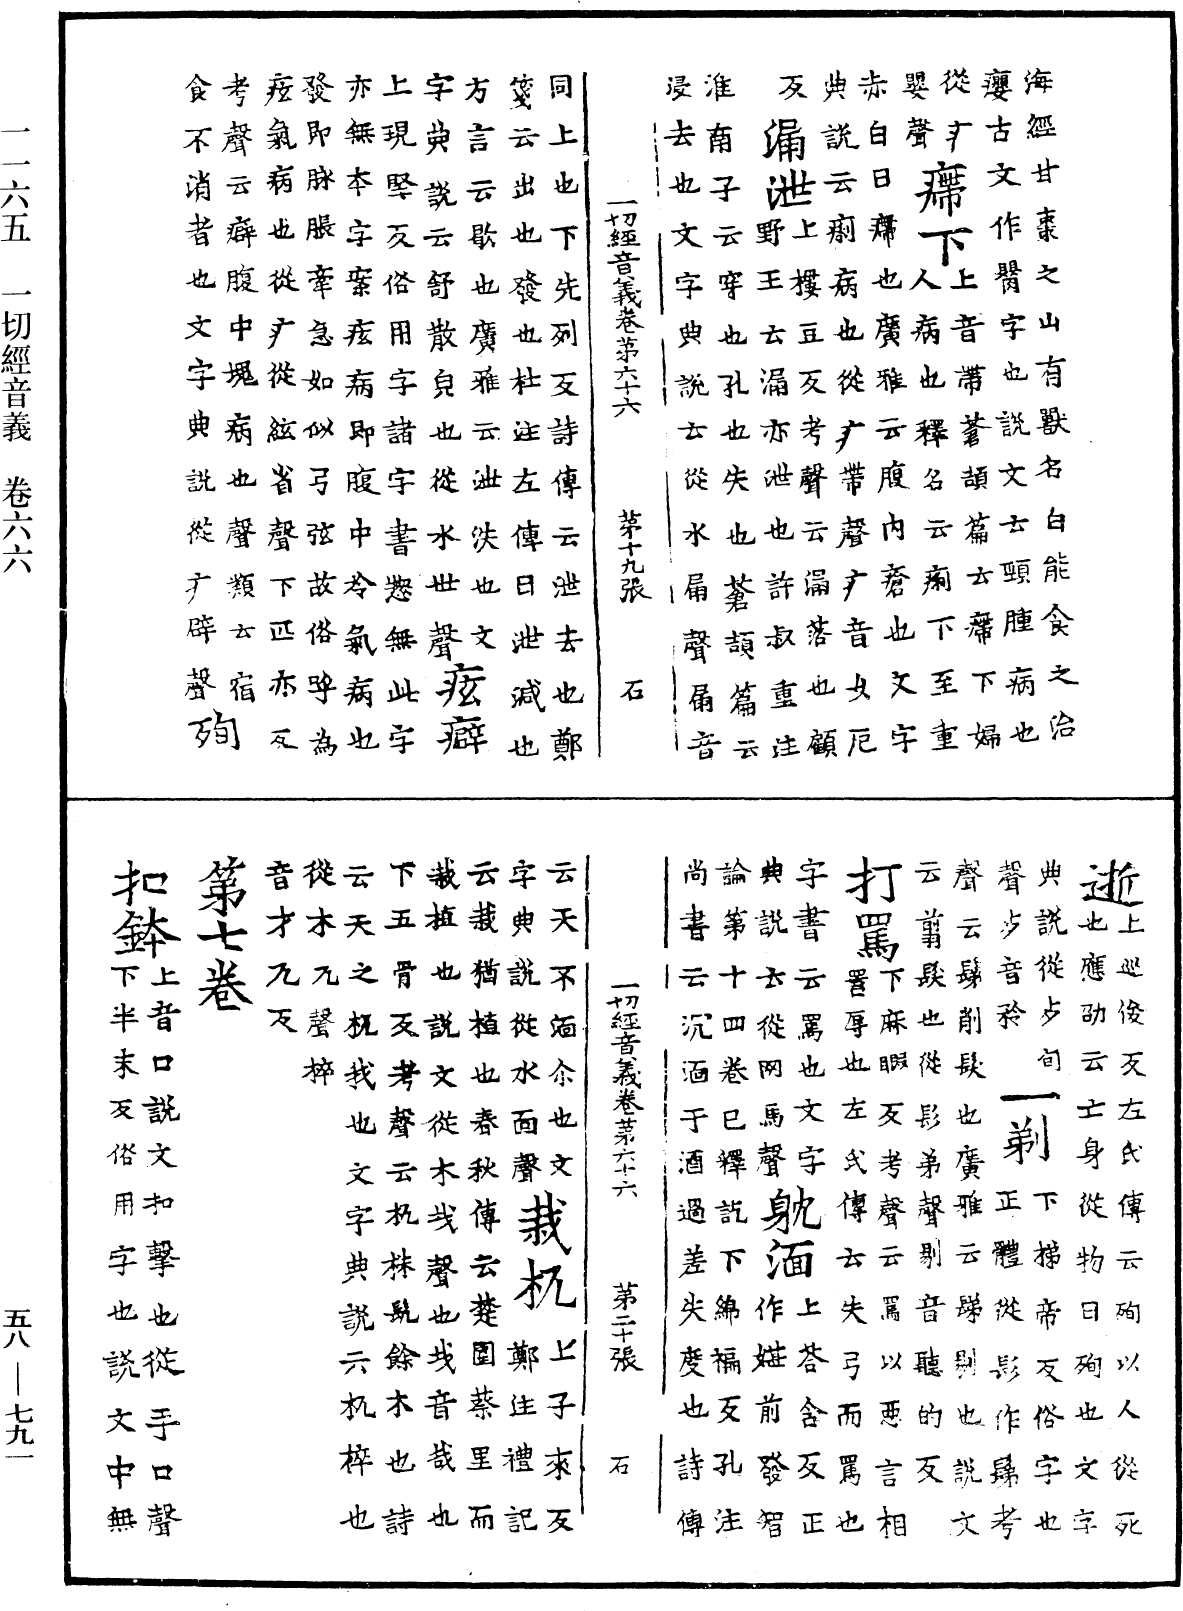 一一六五　一切經音義　卷六六
五八—七九一
海經甘棗之山有獸名白能食之治
癭古文作𦡺字也說文云頸腫病也
從疒嬰聲
𤸷下
上音帶蒼頡篇云𤸷下婦
人病也釋名云痢下至重
赤白曰𤸷也廣雅云腹內瘡也文字
典說云痢病也從疒帶聲疒音女厄
反
漏泄
上摟豆反考聲云漏落也顧
野王云漏亦泄也許叔重注
淮南子云穿也孔也失也蒼頡篇云
浸去也文字典說云從水屚聲屚音
一切經音義卷第六十六　第十九張　石
同上也下先列反詩傳云泄去也鄭
箋云出也發也杜注左傳曰泄減也
方言云歇也廣雅云泄泆也文
字典說云舒散皃也從水世聲
痃癖
上現堅反俗用字諸字書惣無此字
亦無本字案痃病即腹中冷氣病也
發即脉脹牽急如似弓弦故俗呼為
痃氣病也從疒從絃省聲下匹亦反
考聲云癖腹中塊病也聲類云宿
食不消者也文字典說從疒辟聲
殉
逝
上巡俊反左氏傳云殉以人從死
也應劭云亡身從物曰殉也文字
典說從歹旬
聲歹音殄
一剃
下梯帝反俗字也
正體從髟作鬀考
聲云鬀削髮也廣雅云鬀剔也說文
云翦髮也從髟弟聲剔音聽的反
打罵
下麻暇反考聲云罵以惡言相
詈辱也左氏傳云失弓而罵也
字書云罵也文字
典說云從网馬聲
躭湎
上荅含反正
作媅前發智
論第十四卷已釋訖下綿褊反孔注
尚書云沉湎于酒過差失度也詩傳
一切經音義卷第六十六　第二十張　石
云天不湎尒也文
字典說從水面聲
栽杌
上子來反
鄭注禮記
云栽猶植也春秋傳云楚圍蔡里而
栽植也說文從木𢦏聲也𢦏音哉也
下五骨反考聲云杌株髡餘木也詩
云天之杌我也文字典說云杌椊也
從木兀聲椊
音才兀反
第七卷
扣鉢
上音口說文扣擊也從手口聲
下半末反俗用字也說文中無